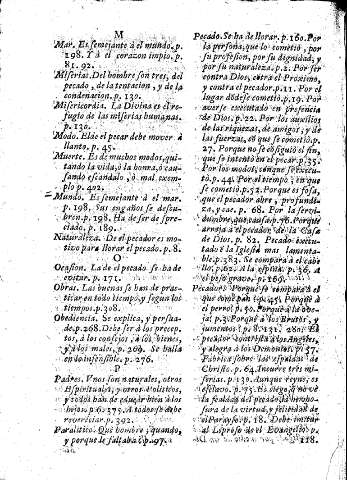 M
Mar. Es semejante à el mundo, p.
198. Y à el corazon impio, p.
81. 92.
Miserias. Del hombre son tres, del
pecado, de la tentacion, y de la
condenacion. p. 130.
Misericordia. La Divina es el re-
fugio de las miserias humanas.
p. 130.
Modo. El de el pecar debe mover à
llanto. p. 45.
Muerte. Es de muchos modos, qui-
tando la vida, ò la honra, ò cau-
sando escandalo, ò mal exem-
plo p. 402.
Mundo. Es semejante à el mar.
p. 198. Sus engaños se descu-
bren. p. 198. Ha de ser despre-
ciado, p. 189.
Naturaleza. De el pecador es mo-
tivo para llorar el pecado. p. 8.
O
Ocasion. La de el pecado se ha de
evitar. p. 171.
Obras. Las buenas se han de prac-
ticar en todo tiempo, y segun los
tiempos. p. 308.
Obediencia. Se explica, y persua-
de. p. 268. Debe ser à los precep-
tos, à los consejos, à los bienes,
y à los males, p. 269. Se halla
en lo insensible, p. 276.
P
Padres. Unos son naturales, otros
Espirituales, y otros Politicos,
y todos han de educar bien à los
hijos. p. 6. 375. A todos se debe
reverenciar. p. 392.
Paralitico. Què hombre, quando,
y porque le faltaba p. 297.
Pecado. Se ha de llorar. p. 160. Por
la persona, que lo cometiò, por
su profesion, por su dignidad, y
por su naturaleza. p. 2. Por ser
contra Dios, contra el Proximo,
y contra el pecador. p. 11. Por el
lugar dõde se cometiò. p. 19. Por
averse executado en presencia
de Dios. p. 22. Por los auxilios
de las riquezas, de amigos, y de
las fuerzas, cõ que se cometiò. p.
27. Porque no se cõsiguiò el fin,
que se intentò en el pecar. p. 35.
Por los modos, con que se execu-
tò. p. 44. Por al tiempo, en que
se cometiò. p. 52. Porque es fosa,
que el pecador abre, profundi-
za, y cae. p. 68. Por la servi-
dumbre, que causa. p. 76. Porque
arroja à el pecador de la Casa
de Dios. p. 82. Pecado execu-
tado en la Iglesia mas lamenta-
ble. p. 383. Se compara à el cabe-
llo, p. 62. A la espina. p. 36. à
el peso grave. p. 169.
Pecador. Porquè se compara à el
perro. p. 50.
jumentos. p. 8. 131. 281. El
pecador contrista à los Angeles,
y alegra à los Demonios. p. 57.
Fabrica sobre las espaldas de
Christo. p. 64. Incurre tres mi-
serias. p. 130. Aunque reyne, es
la fealdad del pecado, la hermo-
sura de la virtud, y felicidad de
el Parayso. p. 18. Debe imitar
al Leproso de el Evangelio. p.
118.